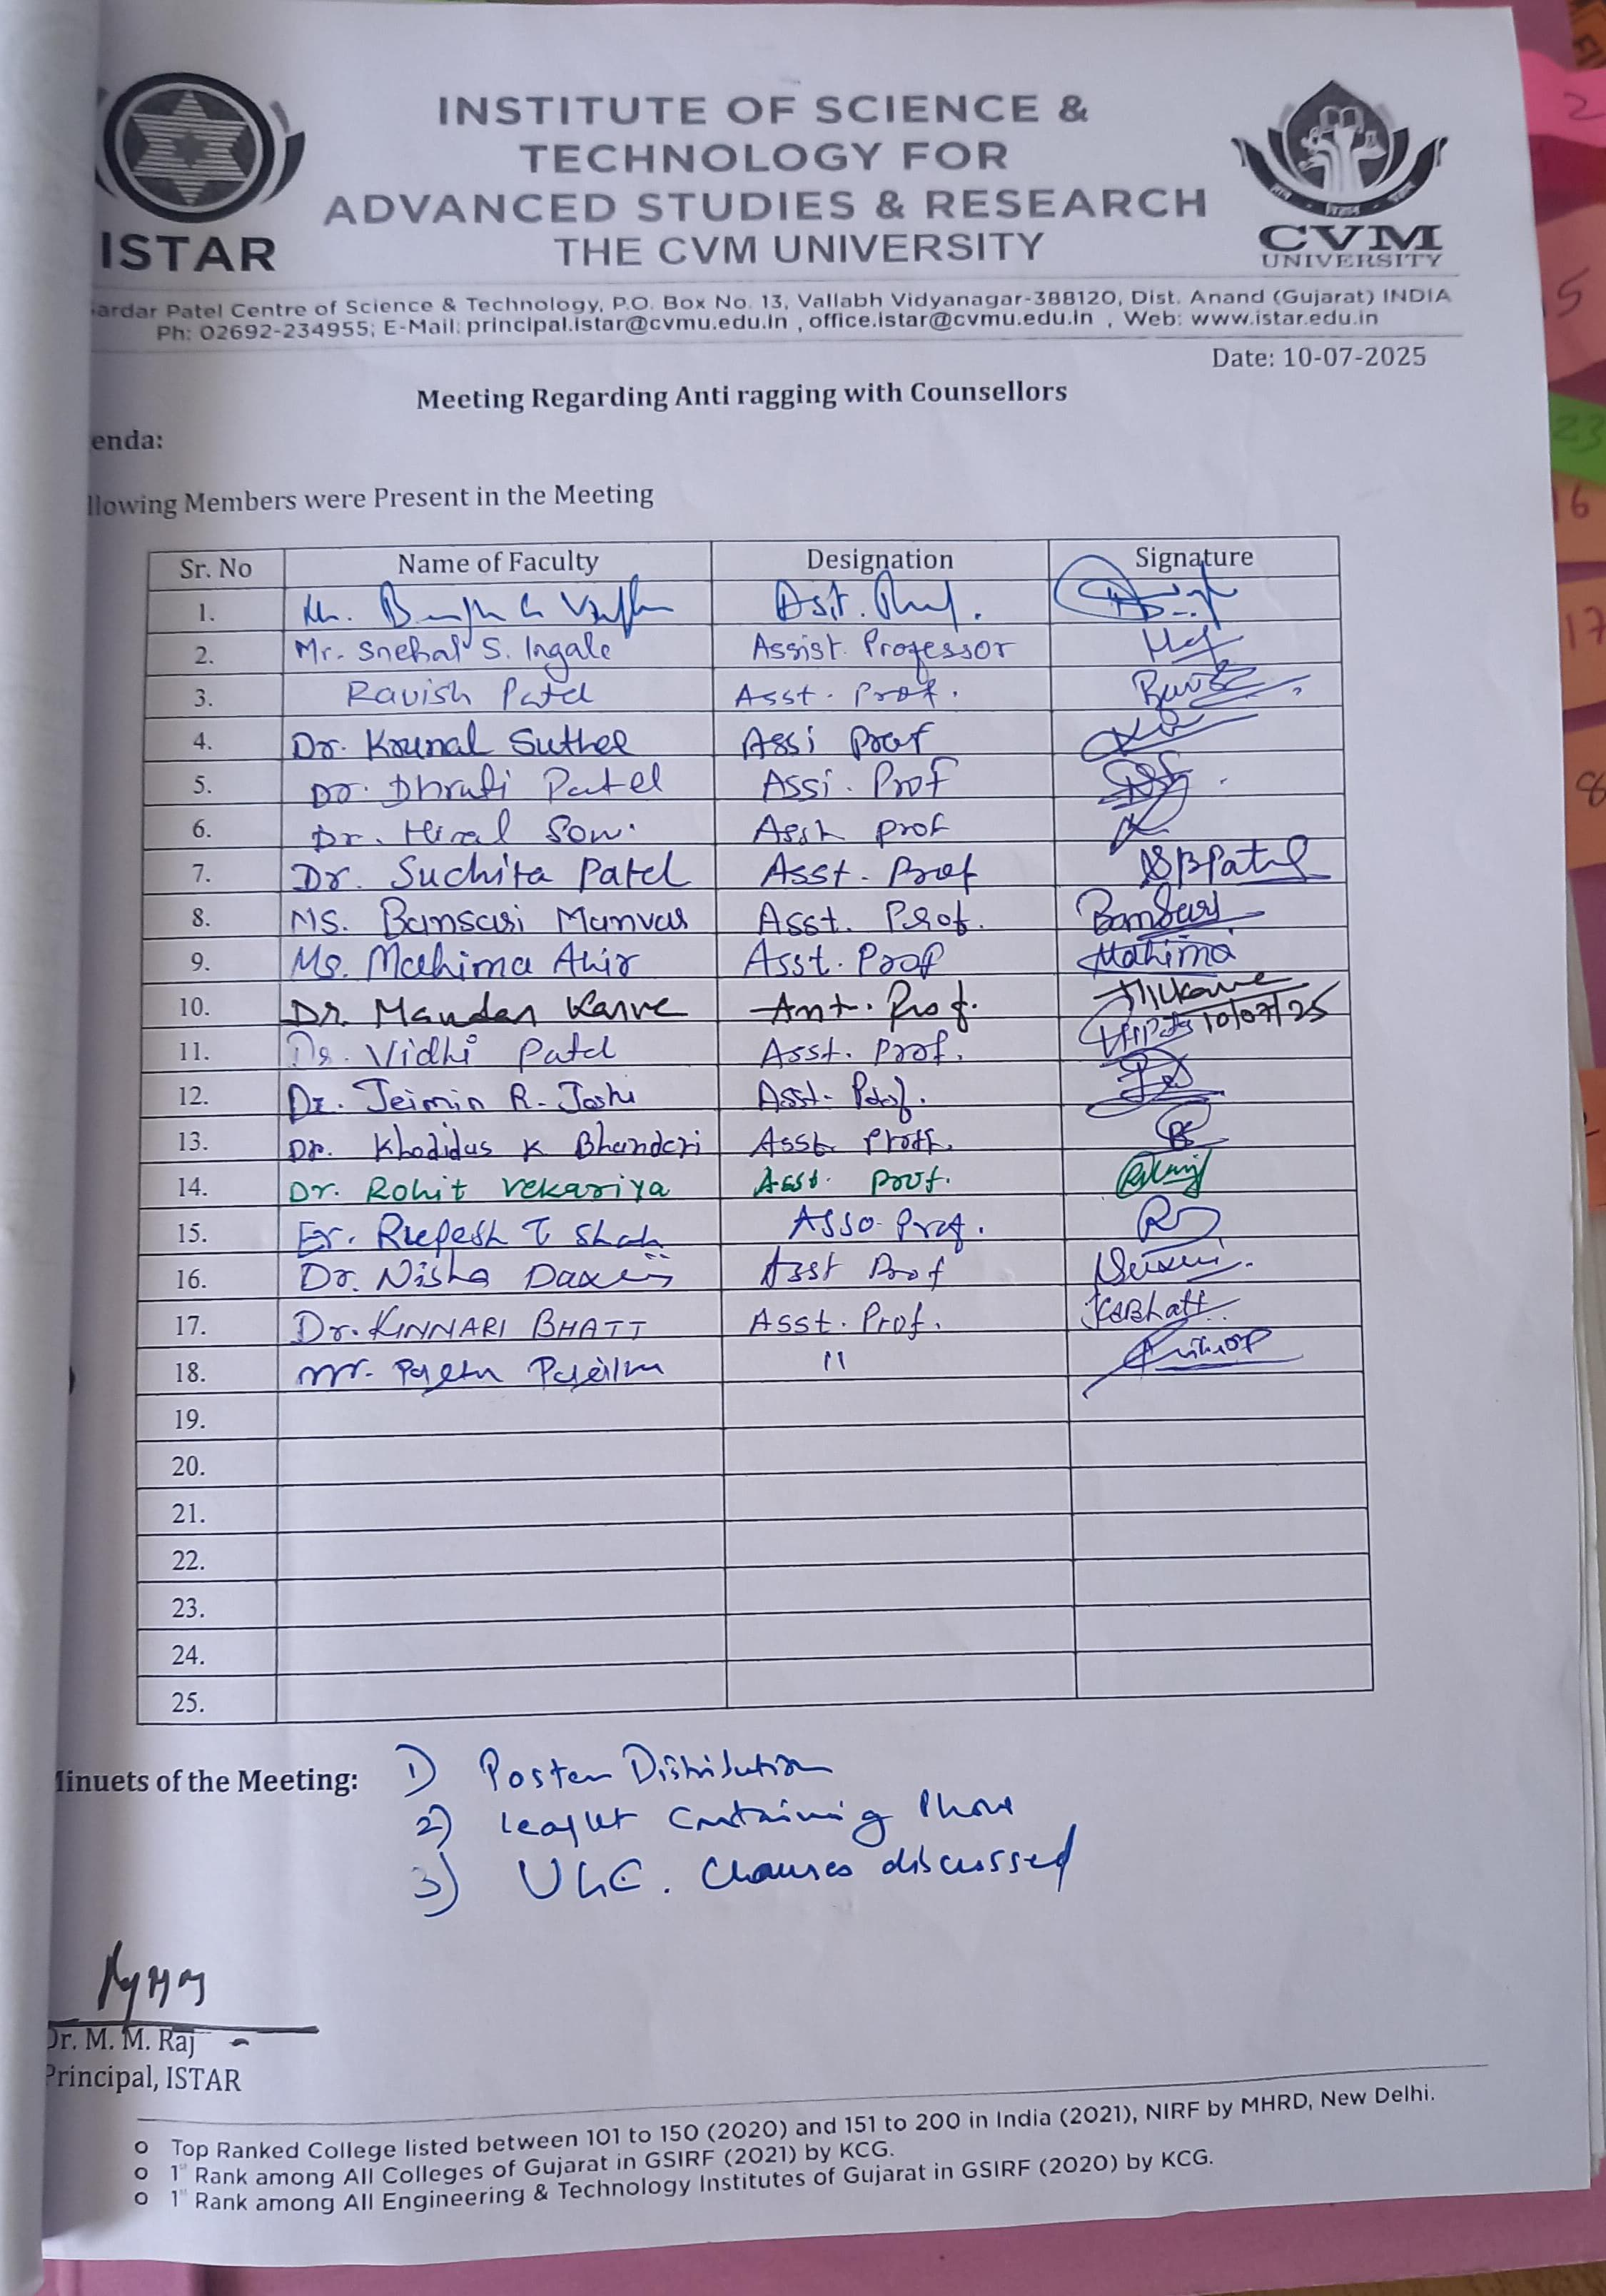 ISTAR
INSTITUTE OF SCIENCE &
TECHNOLOGY FOR
ADVANCED STUDIES & RESEARCH
THE CVM UNIVERSITY
CVM
UNIVERSITY
ardar Patel Centre of Science & Technology, P.O. Box No. 13, Vallabh Vidyanagar-388120, Dist. Anand (Gujarat) INDIA
Ph: 02692-234955; E-Mail: principal.istar@cvmu.edu.in , office.istar@cvmu.edu.in , Web: www.istar.edu.in
Date: 10-07-2025
Meeting Regarding Anti ragging with Counsellors
enda:
llowing Members were Present in the Meeting
Sr. No Name of Faculty Designation Signature
1. Asst. Prof.
2. Mr. Snehal S. Ingale Assist. Professor
3. Ravish Patel Asst. Prof.
4. Dr. Krunal Suthar Assi Prof
5. Dr. Dhruti Patel Assi. Prof
6. Dr. Hiral Soni Asst prof
7. Dr. Suchita Patel Asst. Prof SBPatel
8. Ms. Bansari Manvar Asst. Prof. Bansari
9. Ms. Mahima Ahir Asst. Prof Mahima
10. Dr. Mandar Karve Asst. Prof.
10/07/25
11. Dr. Vidhi Patel Asst. Prof.
12. Dr. Jeimin R. Joshi Asst. Prof.
13. Dr. Khodidas K Bhanderi Asst. Proff.
14. Dr. Rohit Vekariya Asst. Prof.
15. Er. Rupesh T Shah Asso. Prof.
16. Dr. Nisha Daxini Asst Prof
17. Dr. KINNARI BHATT Asst. Prof. KABhatt
18. Mr. "
19.
20.
21.
22.
23.
24.
25.
Minuets of the Meeting: 1) Poster Distribution
2) Leaflet Containing Phone
3) UGC. Clauses discussed
Dr. M. M. Raj
Principal, ISTAR
o Top Ranked College listed between 101 to 150 (2020) and 151 to 200 in India (2021), NIRF by MHRD, New Delhi.
o 1st Rank among All Colleges of Gujarat in GSIRF (2021) by KCG.
o 1st Rank among All Engineering & Technology Institutes of Gujarat in GSIRF (2020) by KCG.
2
5
23
16
17
8